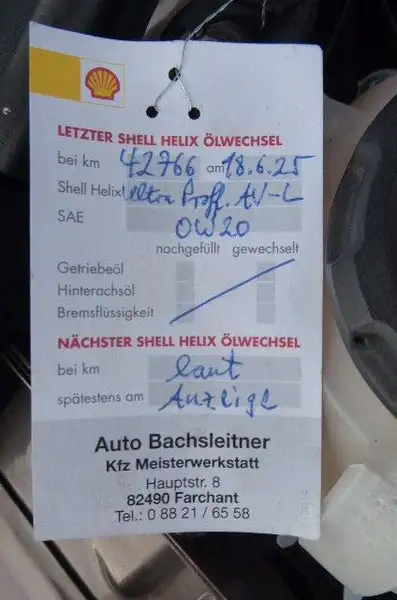 LETZTER SHELL HELIX ÖLWECHSEL
bei km 42766 am 18.6.25
Shell Helix Ultra Proff. AV-L
SAE 0W20
nachgefüllt gewechselt
Getriebeöl
Hinterachsöl
Bremsflüssigkeit
NÄCHSTER SHELL HELIX ÖLWECHSEL
bei km laut
spätestens am Anzeige
Auto Bachsleitner
Kfz Meisterwerkstatt
Hauptstr. 8
82490 Farchant
Tel.: 0 88 21 / 65 58